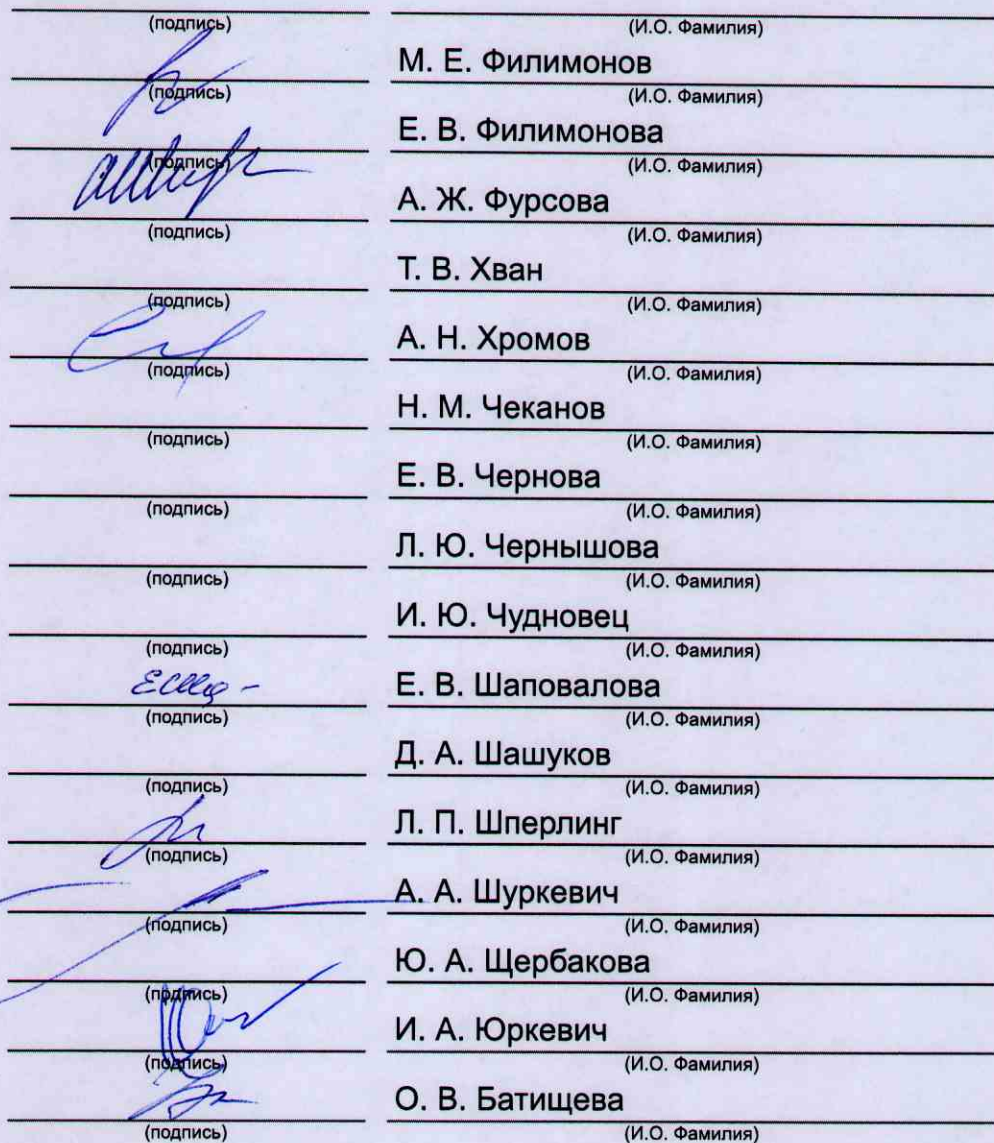 (подпись) (И.О. Фамилия)
М. Е. Филимонов
(подпись) (И.О. Фамилия)
Е. В. Филимонова
(подпись) (И.О. Фамилия)
А. Ж. Фурсова
(подпись) (И.О. Фамилия)
Т. В. Хван
(подпись) (И.О. Фамилия)
А. Н. Хромов
(подпись) (И.О. Фамилия)
Н. М. Чеканов
(подпись) (И.О. Фамилия)
Е. В. Чернова
(подпись) (И.О. Фамилия)
Л. Ю. Чернышова
(подпись) (И.О. Фамилия)
И. Ю. Чудновец
(подпись) (И.О. Фамилия)
Е. В. Шаповалова
(подпись) (И.О. Фамилия)
Д. А. Шашуков
(подпись) (И.О. Фамилия)
Л. П. Шперлинг
(подпись) (И.О. Фамилия)
А. А. Шуркевич
(подпись) (И.О. Фамилия)
Ю. А. Щербакова
(подпись) (И.О. Фамилия)
И. А. Юркевич
(подпись) (И.О. Фамилия)
О. В. Батищева
(подпись) (И.О. Фамилия)